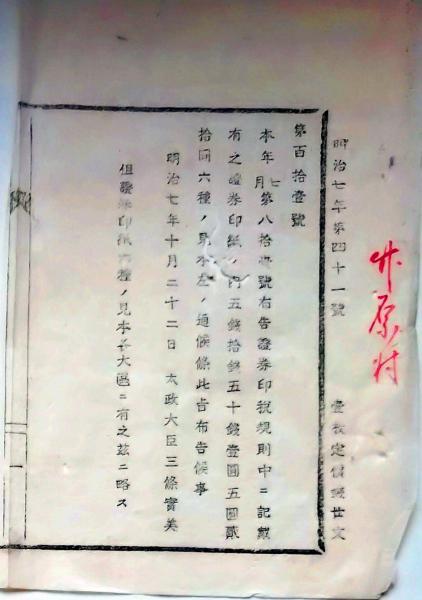 明治七年第四十一號 壹枚定價廿文
井原村
第百拾壹號
本年七月第八拾號布告證券印稅規則中ニ記載
有之證券印紙ノ內五錢拾錢五十錢壹圓五圓貳
拾圓六種ノ見本左ノ通候條此旨布告候事
明治七年十月二十二日 太政大臣三條實美
但證券印紙六種ノ見本各大區ニ有之茲ニ略ス